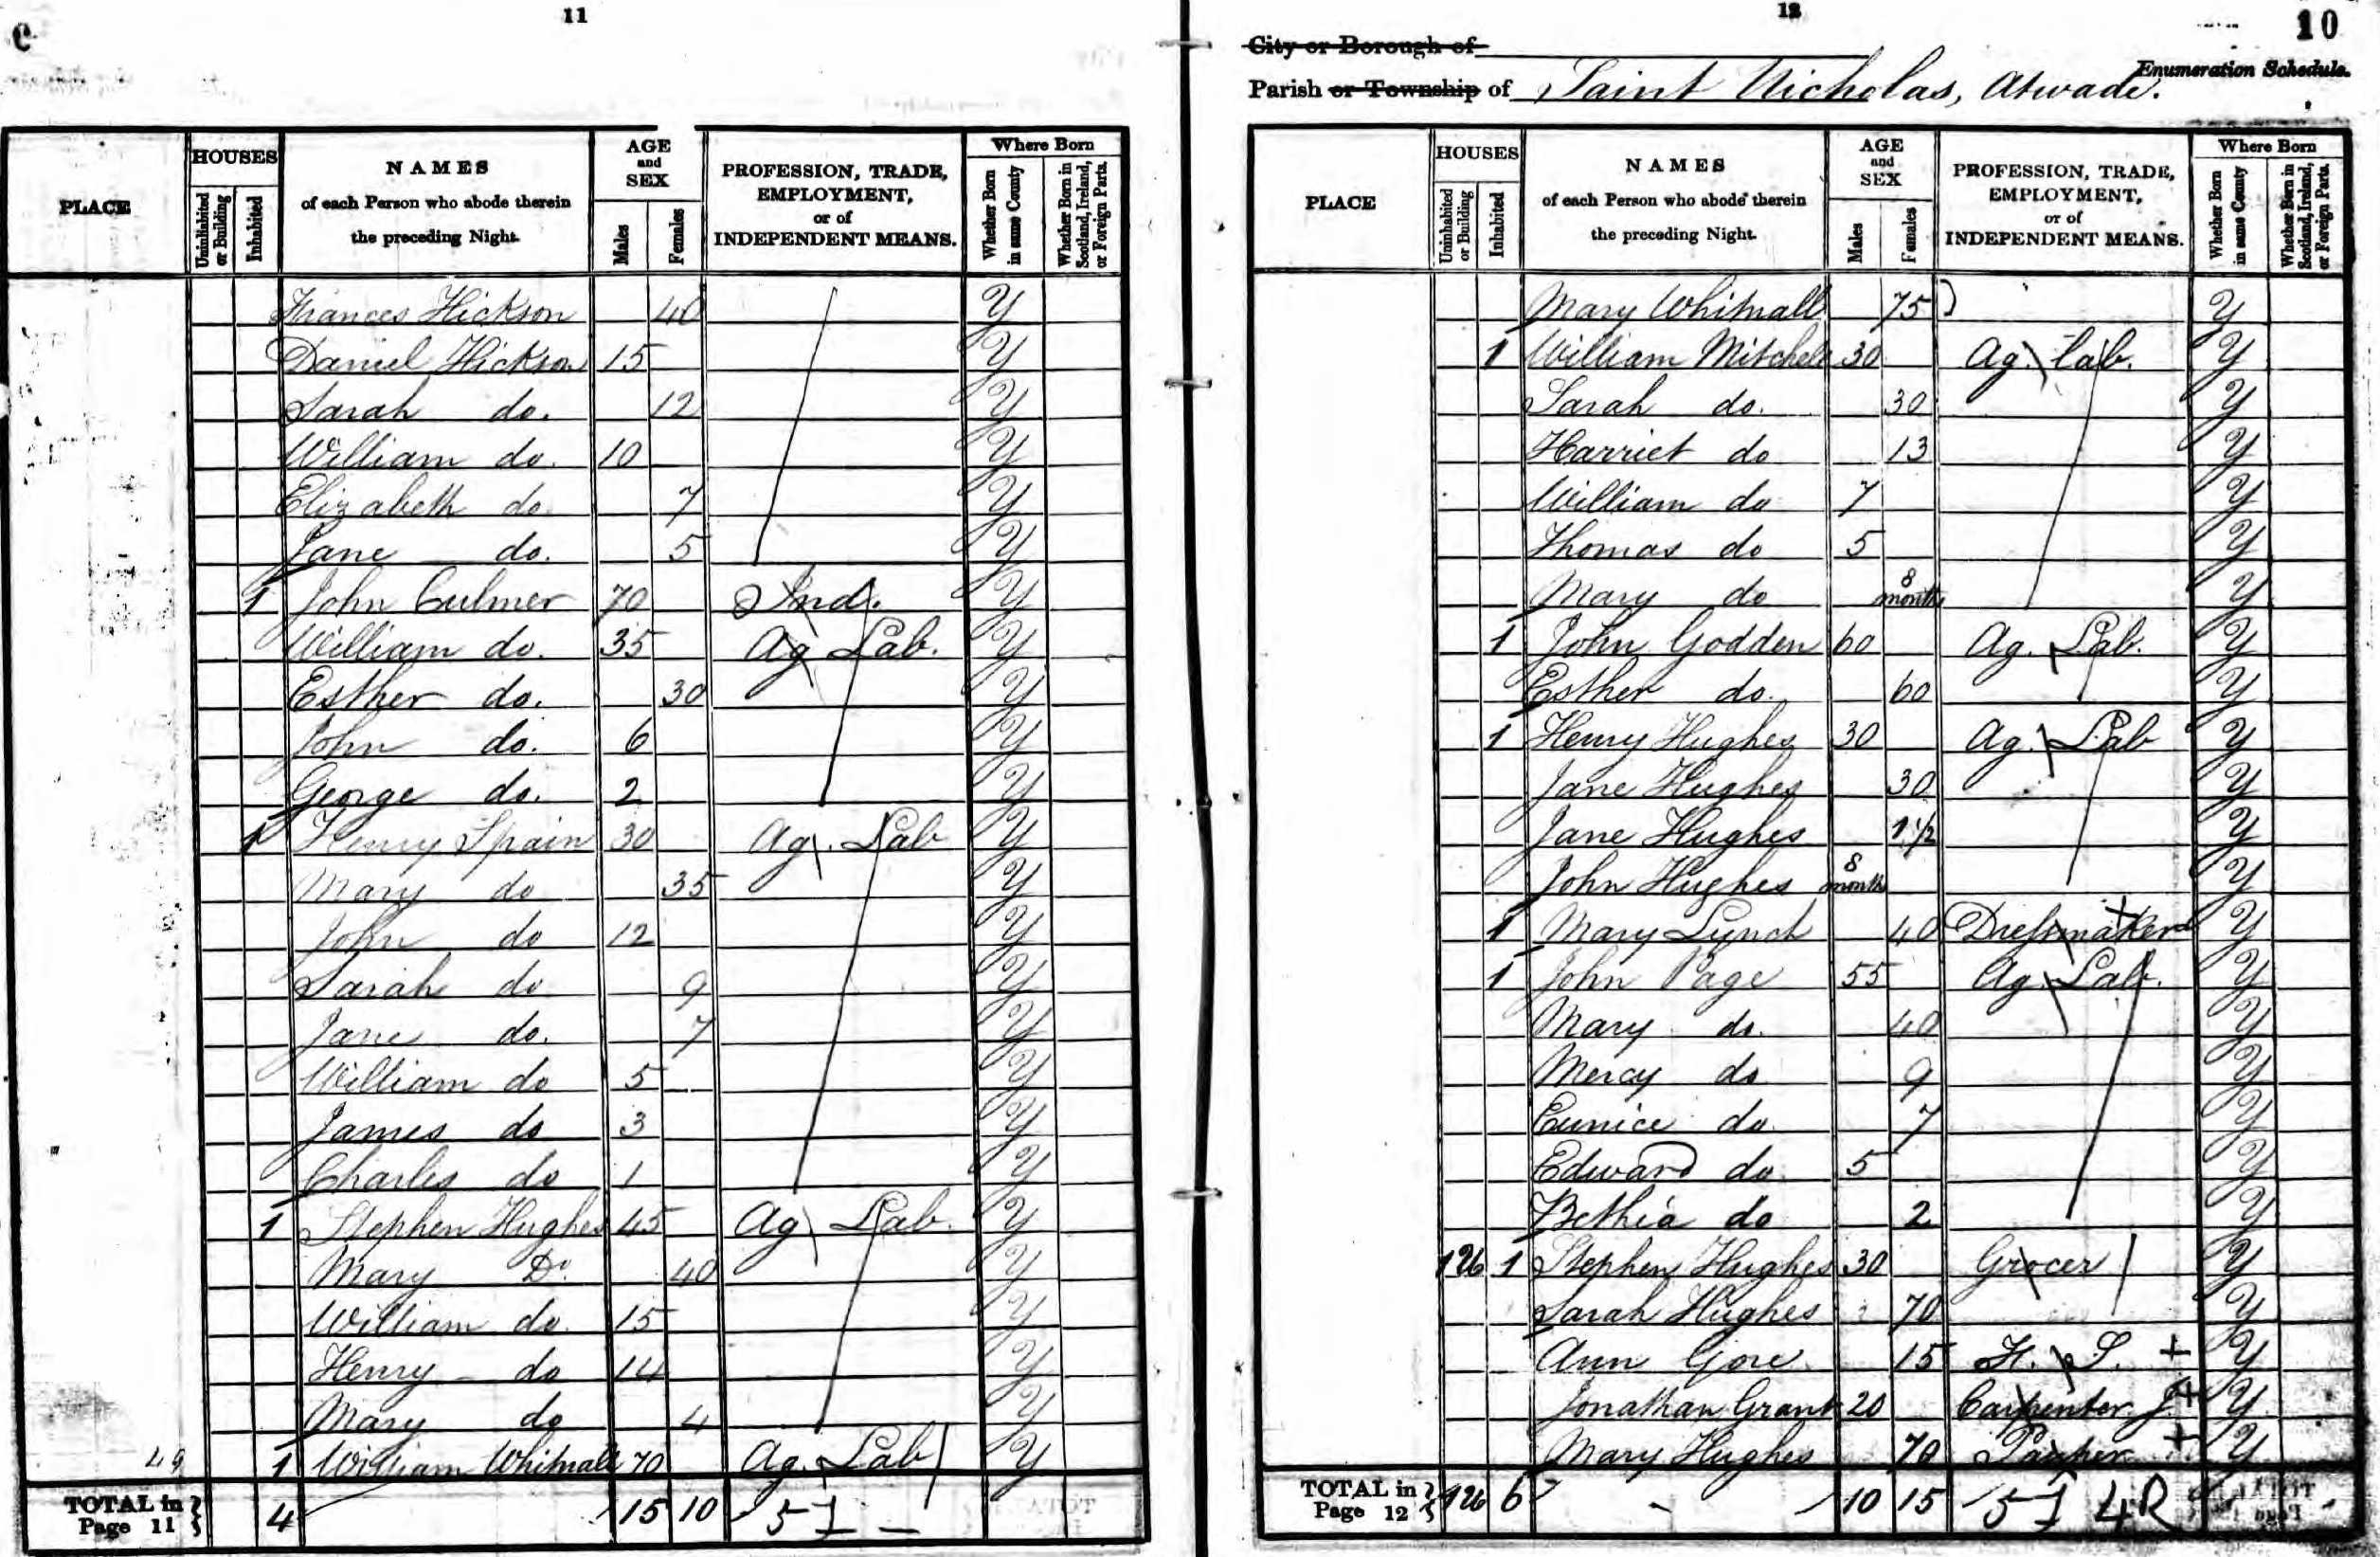 11
C
PLACE
HOUSES
Uninhabited or Building
Inhabited
NAMES
of each Person who abode therein
the preceding Night.
AGE
and
SEX
Males
Females
PROFESSION, TRADE,
EMPLOYMENT,
or of
INDEPENDENT MEANS.
Where Born
Whether Born in same County
Whether Born in Scotland, Ireland, or Foreign Parts.
Frances Hickson 40 Y
Daniel Hickson 15 Y
Sarah do. 12 Y
William do. 10 Y
Elizabeth do. 7 Y
Jane do. 5 Y
1 John Culmer 70 Ind. Y
William do. 35 Ag Lab. Y
Esther do. 30 Y
John do. 6 Y
George do. 2 Y
1 Henry Spain 30 Ag. Lab Y
Mary do 35 Y
John do 12 Y
Sarah do 9 Y
Jane do. 7 Y
William do 5 Y
James do 3 Y
Charles do 1 Y
1 Stephen Hughes 45 Ag Lab. Y
Mary Do. 40 Y
William do. 15 Y
Henry do 14 Y
Mary do 4 Y
49 1 William Whitnall 70 Ag. Lab Y
TOTAL in Page 11 } 4 15 10 5 I
12
10
City or Borough of
Enumeration Schedule.
Parish or Township of Saint Nicholas, Atwade.
PLACE
HOUSES
Uninhabited or Building
Inhabited
NAMES
of each Person who abode therein
the preceding Night.
AGE
and
SEX
Males
Females
PROFESSION, TRADE,
EMPLOYMENT,
or of
INDEPENDENT MEANS.
Where Born
Whether Born in same County
Whether Born in Scotland, Ireland, or Foreign Parts.
Mary Whitnall 75 Y
1 William Mitchell 30 Ag. Lab. Y
Sarah do. 30 Y
Harriet do 13 Y
William do 7 Y
Thomas do 5 Y
Mary do 8 month Y
1 John Godden 60 Ag. Lab. Y
Esther do. 60 Y
1 Henry Hughes 30 Ag. Lab Y
Jane Hughes 30 Y
Jane Hughes 1 1/2 Y
John Hughes 8 month Y
1 Mary Lynch 40 Dressmaker Y
1 John Page 55 Ag. Lab. Y
Mary do. 40 Y
Mercy do 9 Y
Eunice do. 7 Y
Edward do. 5 Y
Bethia do 2 Y
1 1 Stephen Hughes 30 Grocer Y
Sarah Hughes 70 Y
Ann Gore 15 F. S. + Y
Jonathan Grant 20 Carpenter J. + Y
Mary Hughes 70 Pauper + Y
TOTAL in Page 12 } 6 10 15 5 I 4R